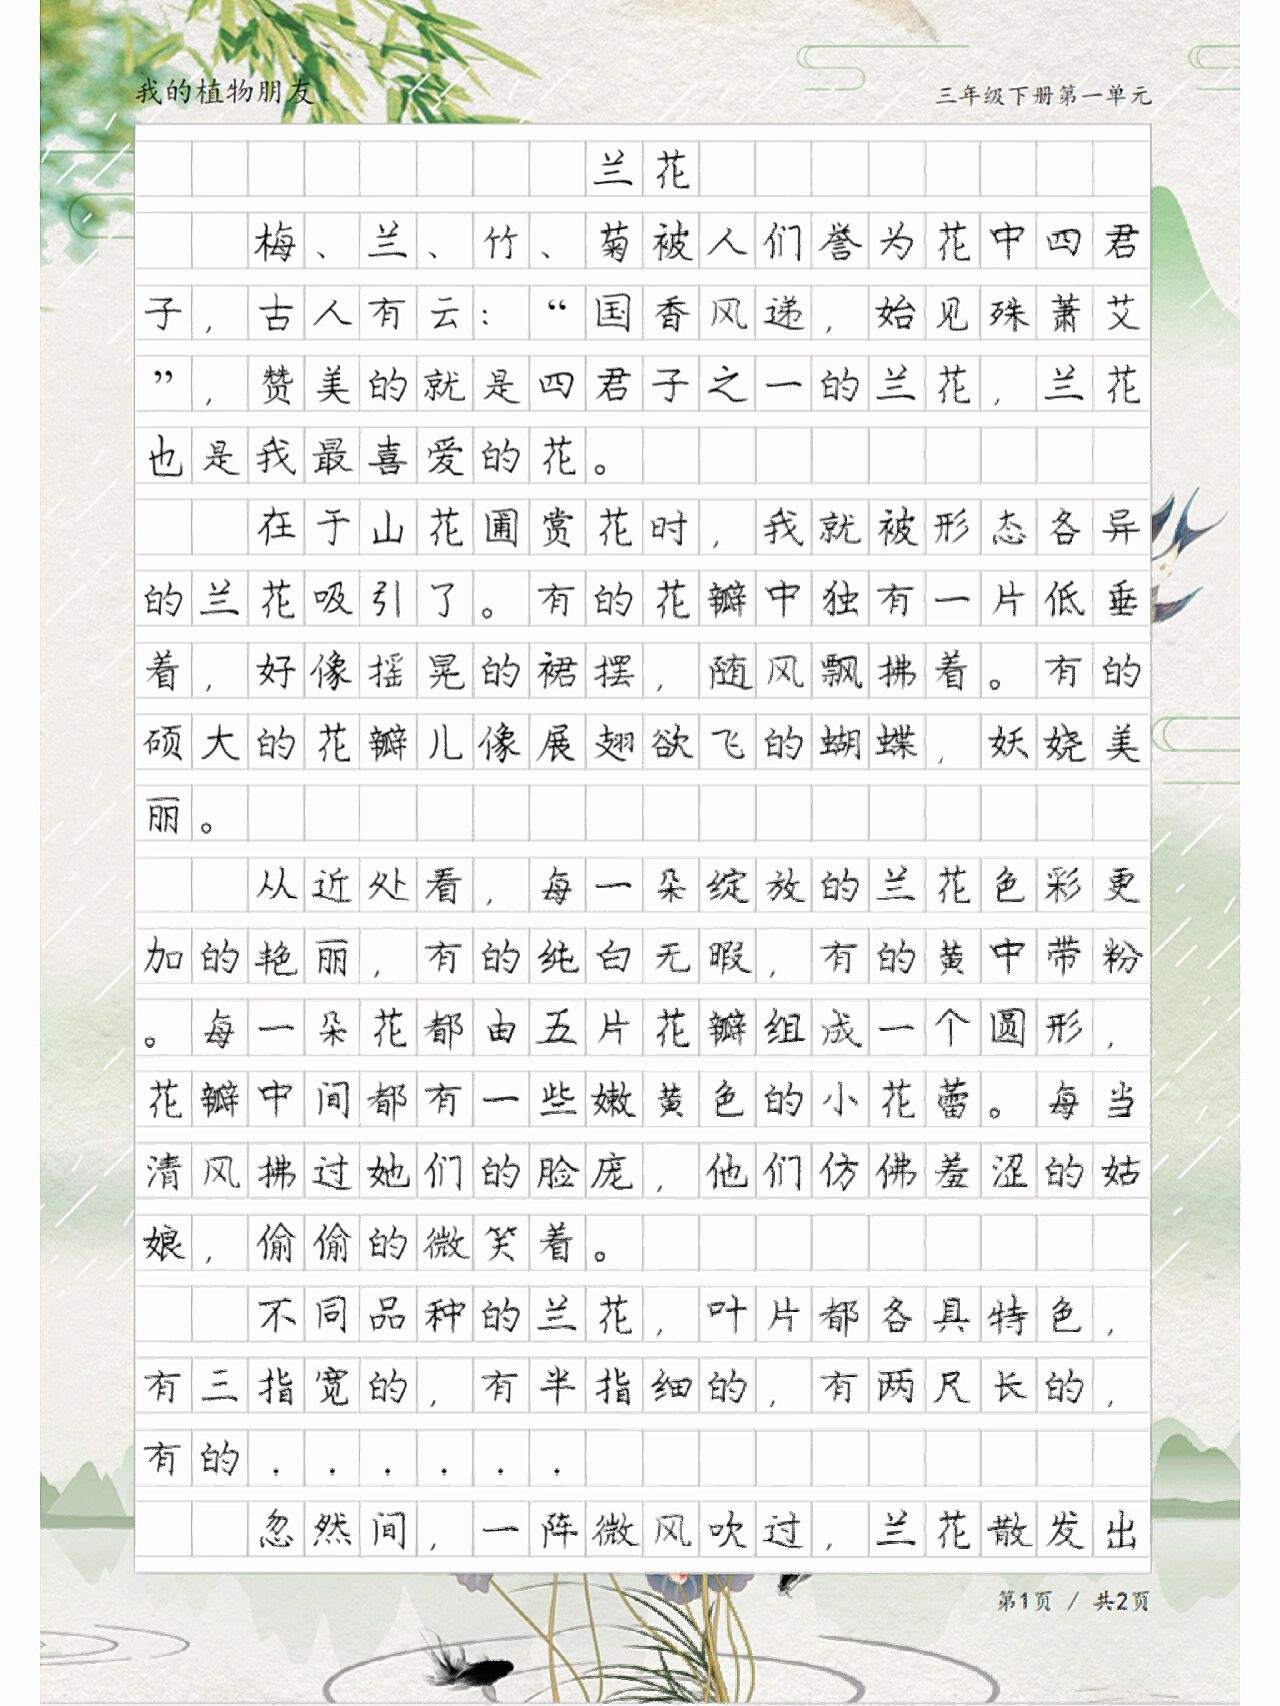 我的植物朋友
三年级下册第一单元
兰花
梅、兰、竹、菊被人们誉为花中四君
子，古人有云：“国香风递，始见殊萧艾
”，赞美的就是四君子之一的兰花，兰花
也是我最喜爱的花。
在于山花圃赏花时，我就被形态各异
的兰花吸引了。有的花瓣中独有一片低垂
着，好像摇晃的裙摆，随风飘拂着。有的
硕大的花瓣儿像展翅欲飞的蝴蝶，妖娆美
丽。
从近处看，每一朵绽放的兰花色彩更
加的艳丽，有的纯白无暇，有的黄中带粉
。每一朵花都由五片花瓣组成一个圆形，
花瓣中间都有一些嫩黄色的小花蕾。每当
清风拂过她们的脸庞，他们仿佛羞涩的姑
娘，偷偷的微笑着。
不同品种的兰花，叶片都各具特色，
有三指宽的，有半指细的，有两尺长的，
有的......
忽然间，一阵微风吹过，兰花散发出
第1页 / 共2页